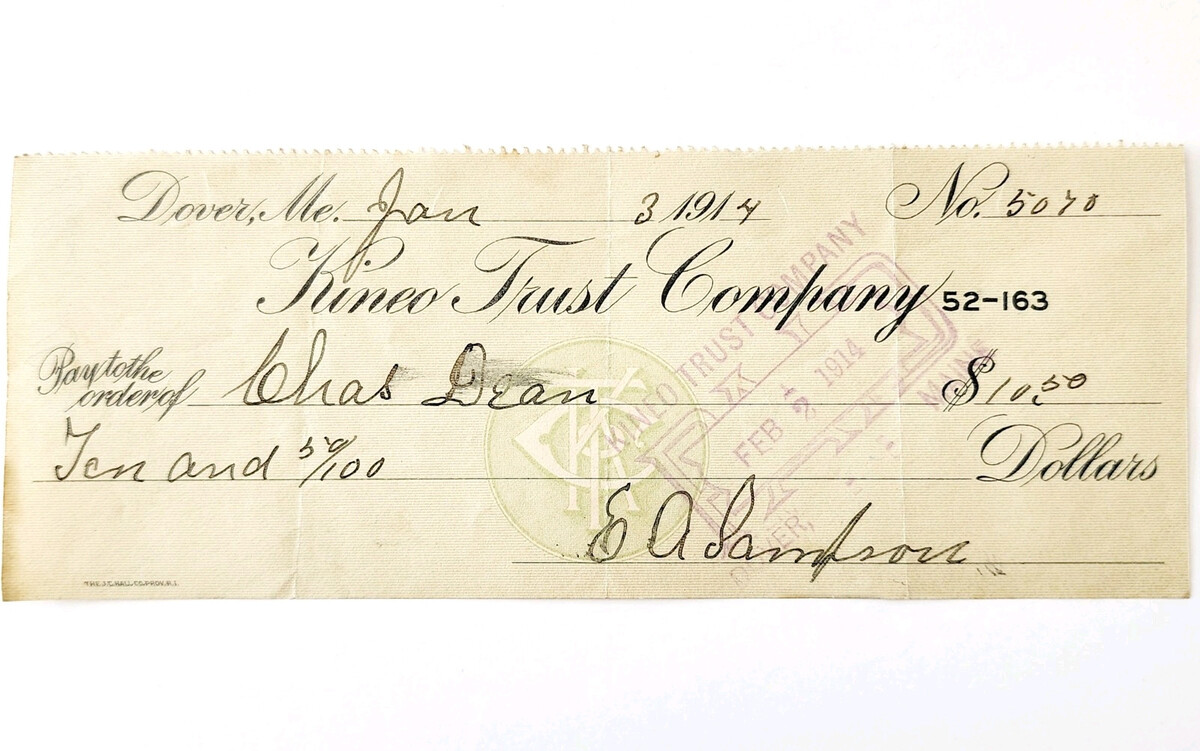 Dover, Me. Jan 3 1914 No. 5070
Kineo Trust Company 52-163
Pay to the order of Chas Dean $10.50
Ten and 50/100 Dollars
E A Sampson
KINEO TRUST COMPANY
FEB 2 1914
DOVER, MAINE
THE J.C. HALL CO. PROV. R.I.